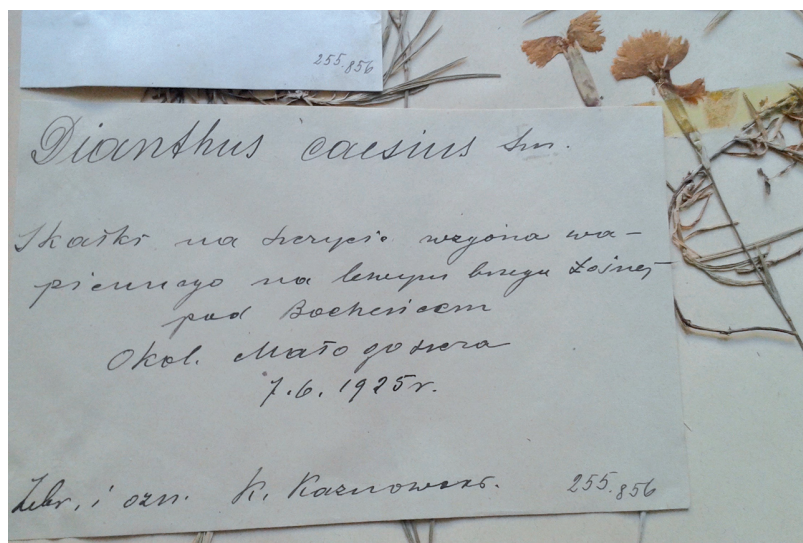 255.856
Dianthus caesius Sm.
Skałki na szczycie wzgórza wa-
piennego na lewym brzegu Łośnej
pod Bocheńcem
Okol. Małogoszcza
7.6.1925r.
Zebr. i ozn. K. Kaznowski.
255.856